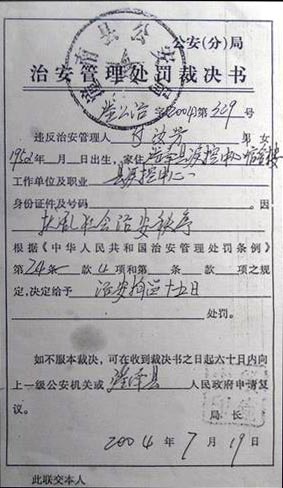 公安(分)局
治安管理处罚裁决书
公治 字2004第329号
违反治安管理人 男 女
195 年 月 日出生,家住 县疾控中心
工作单位及职业 县疾控中心
身份证件及号码 因
扰乱社会治安秩序
根据《中华人民共和国治安管理处罚条例》
第24条 款4项和第 条 款 项之规
定,决定给予 治安拘留十五日
处罚。
如不服本裁决,可在收到裁决书之日起六十日内向
上一级公安机关或 县 人民政府申请复
议。
局长
2004年7月19日
此联交本人